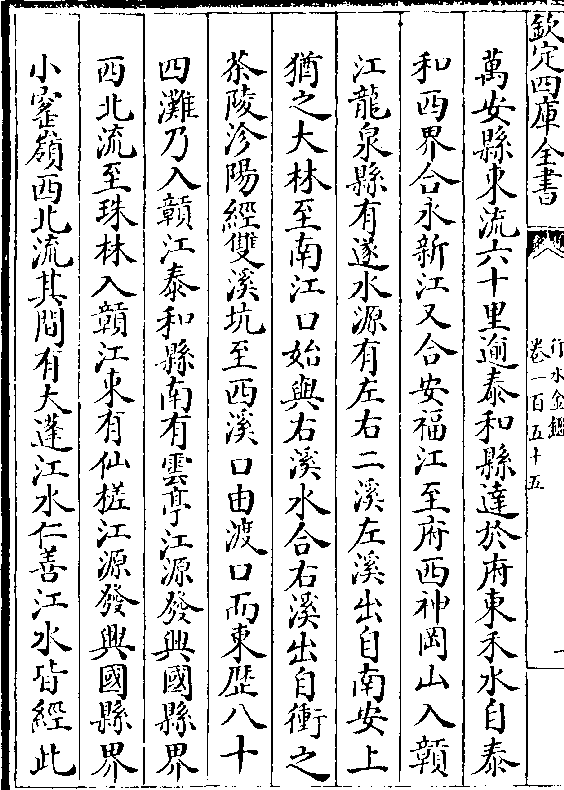 欽定四庫全書
行水金鑑
卷一百五十五
一
萬安縣東流六十里逾泰和縣達於府東禾水自泰
和西界合永新江又合安福江至府西神岡山入贑
江龍泉縣有遂水源有左右二溪左溪出自南安上
猶之大林至南江口始與右溪水合右溪出自衝之
茶陵沴陽經雙溪坑至西溪口由渡口而東歴八十
四灘乃入贑江泰和縣南有雲亭江源發興國縣界
西北流至珠林入贑江東有仙槎江源發興國縣界
小窰嶺西北流其間有大蓬江水仁善江水皆經此